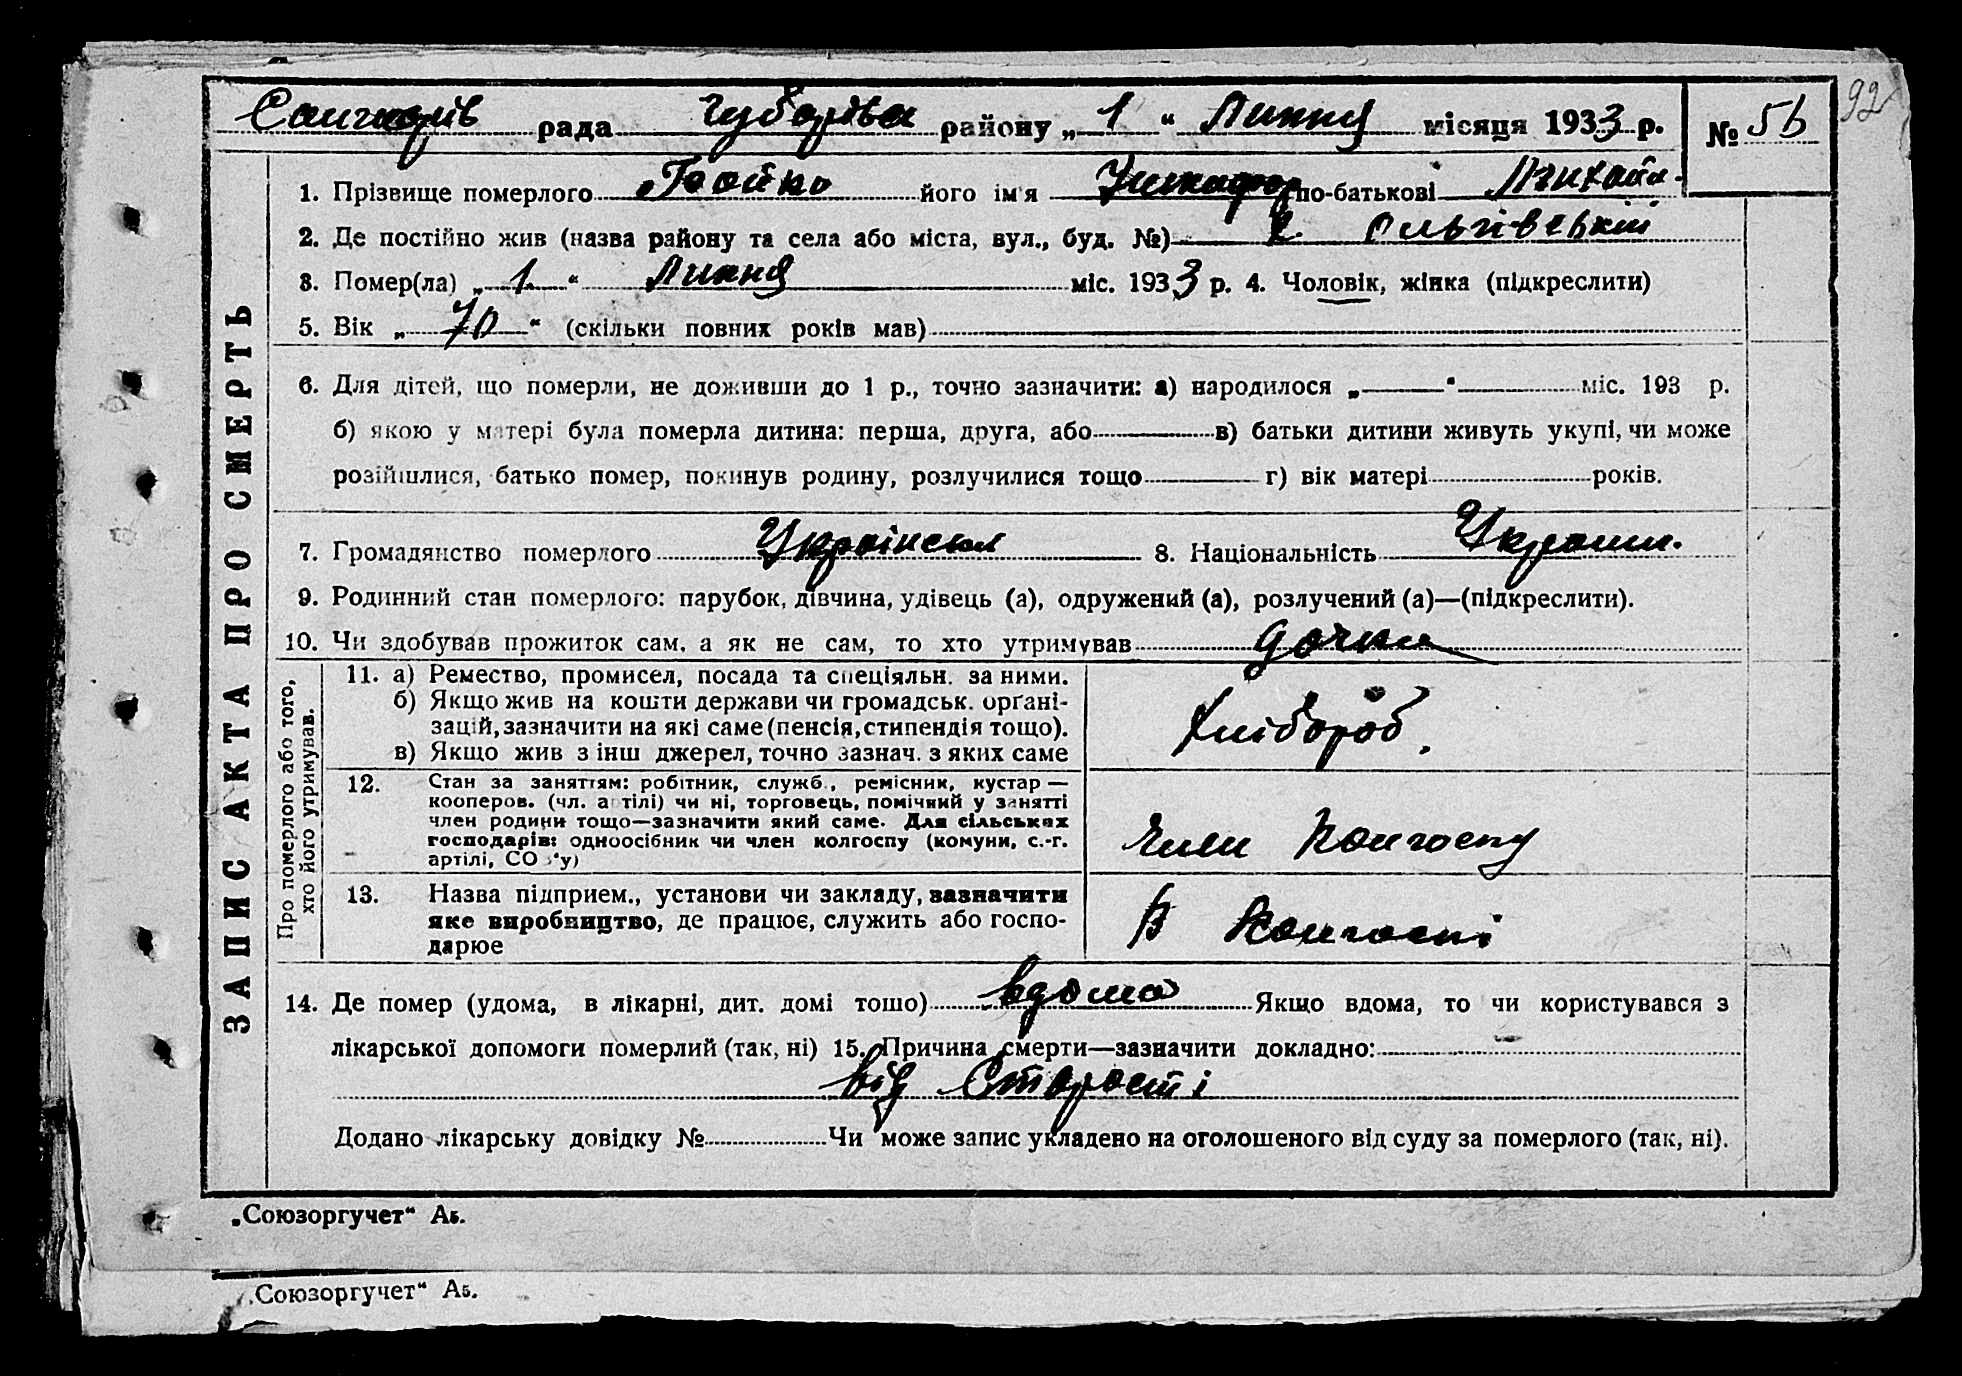 92
рада Губарівка району „ 1 “ Липня місяця 1933 р. № 56
ЗАПИС АКТА ПРО СМЕРТЬ
1. Прізвище померлого Бойко його ім'я по-батькові Михайл.
2. Де постійно жив (назва району та села або міста, вул., буд. №) Ольгівський
3. Помер(ла) „ 1 “ Липня міс. 1933 р. 4. Чоловік, жінка (підкреслити)
5. Вік „ 70 “ (скільки повних років мав)
6. Для дітей, що померли, не доживши до 1 р., точно зазначити: а) народилося „ “ міс. 193 р.
б) якою у матері була померла дитина: перша, друга, або в) батьки дитини живуть укупі, чи може
розійшлися, батько помер, покинув родину, розлучилися тощо г) вік матері років.
7. Громадянство померлого Українськ 8. Національність Україн.
9. Родинний стан померлого: парубок, дівчина, удівець (а), одружений (а), розлучений (а)—(підкреслити).
10. Чи здобував прожиток сам, а як не сам, то хто утримував дочка
Про померлого або того, хто його утримував.
11. а) Ремество, промисел, посада та спеціяльн. за ними.
б) Якщо жив на кошти держави чи громадськ. орґані-
зацій, зазначити на які саме (пенсія, стипендія тощо).
в) Якщо жив з інш джерел, точно зазнач. з яких саме
Хлібороб.
12. Стан за заняттям: робітник, служб., ремісник, кустар —
кооперов. (чл. артілі) чи ні, торговець, помічний у занятті
член родини тощо—зазначити який саме. Для сільських
господарів: одноосібник чи член колгоспу (комуни, с.-г.
артілі, СО у)
член колгоспу
13. Назва підприєм., установи чи закладу, зазначити
яке виробництво, де працює, служить або госпо-
дарює
в колгоспі
14. Де помер (удома, в лікарні, дит. домі тошо) вдома Якщо вдома, то чи користувався з
лікарської допомоги померлий (так, ні) 15. Причина смерти—зазначити докладно:
від старості
Додано лікарську довідку № Чи може запис укладено на оголошеного від суду за померлого (так, ні).
„Союзоргучет“ А5.
„Союзоргучет“ А5.